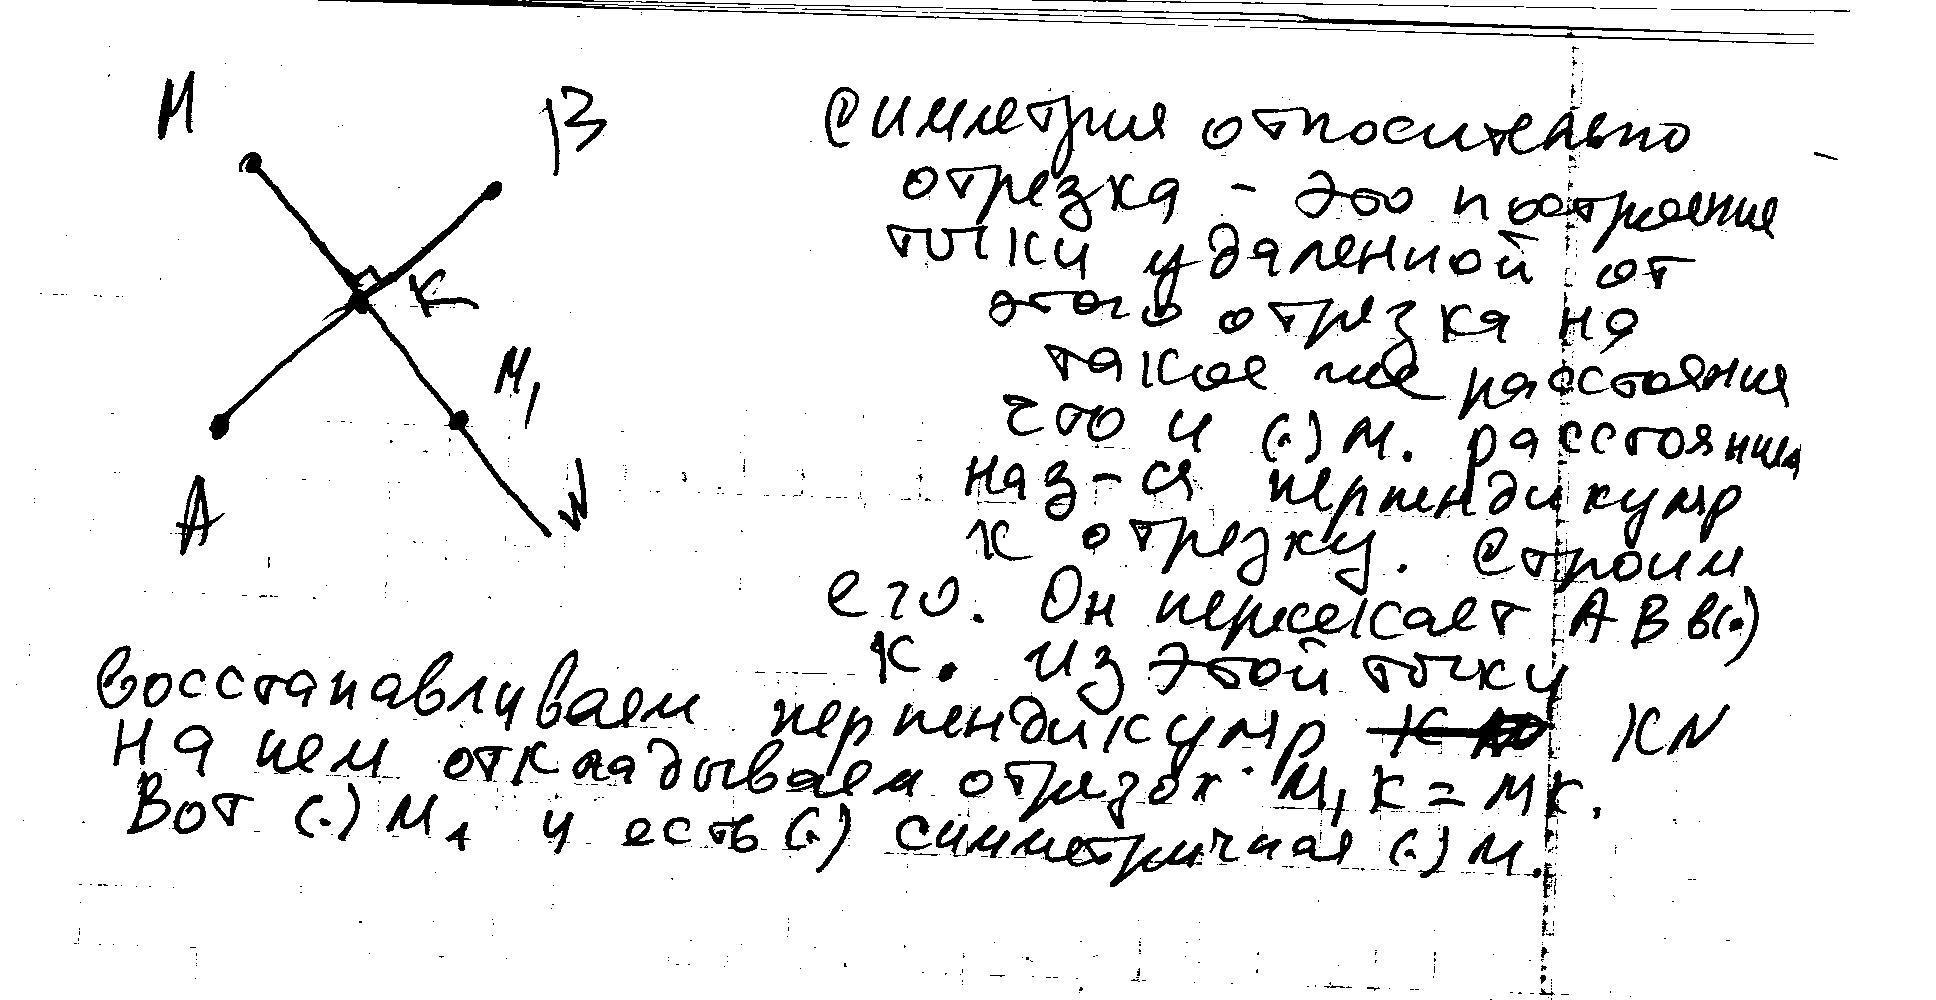 М
В
К
М₁
А
N
Симметрия относительно
отрезка - это построение
точки удаленной от
этого отрезка на
такое же расстояние
что и (.) М. расстояния
наз-ся перпендикуляр
к отрезку. Строим
его. Он пересекает АВ в(.)
К. Из этой точки
восстанавливаем перпендикуляр KN
На нем откладываем отрезок М₁К = МК.
Вот (.) М₁ и есть (.) симметричная (.) М.